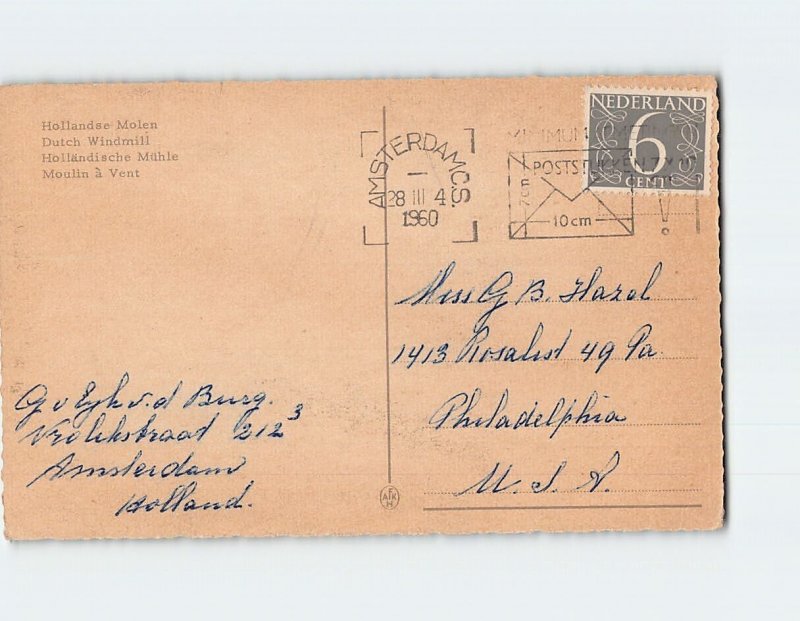 Hollandse Molen
Dutch Windmill
Holländische Mühle
Moulin à Vent
AMSTERDAM C.S.
28 III 4
1960
MINIMUM
POSTSTUKKEN
7cm
10cm
!
NEDERLAND
6
CENT
Miss G B. Hazel
1413 Rosalist 49 Pa
Philadelphia
U. S. A.
G v Eyk v.d Burg.
Vrolikstraat 212 3
Amsterdam
Holland.